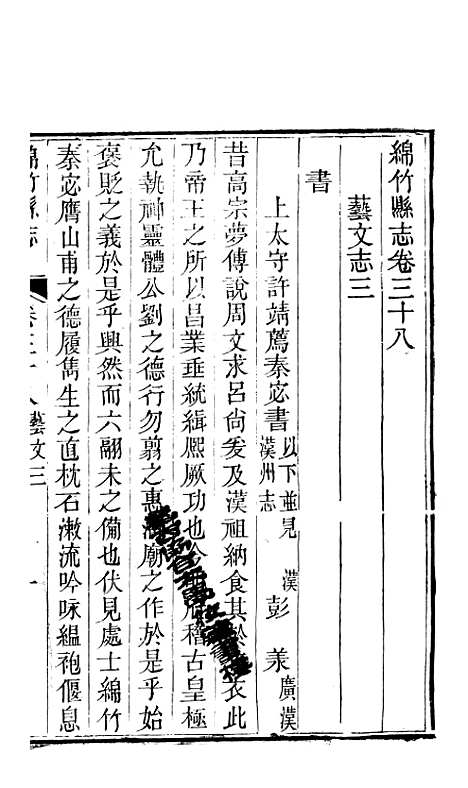 綿竹縣志卷三十八
藝文志三
書
上太守許靖薦秦宓書以下並見漢州志 漢 彭羕廣漢
昔高宗夢傅說周文求呂尙爰及漢祖納食其於 衣此
乃帝王之所以昌業垂統緝熈厥功也今 稽古皇極
允執神靈體公劉之德行勿翦之惠 廟之作於是乎始
褒貶之義於是乎興然而六翮未之備也伏見處士綿竹
秦宓膺山甫之德履雋生之直枕石漱流吟咏縕袍偃息
綿竹縣志 卷三十八 藝文三 一